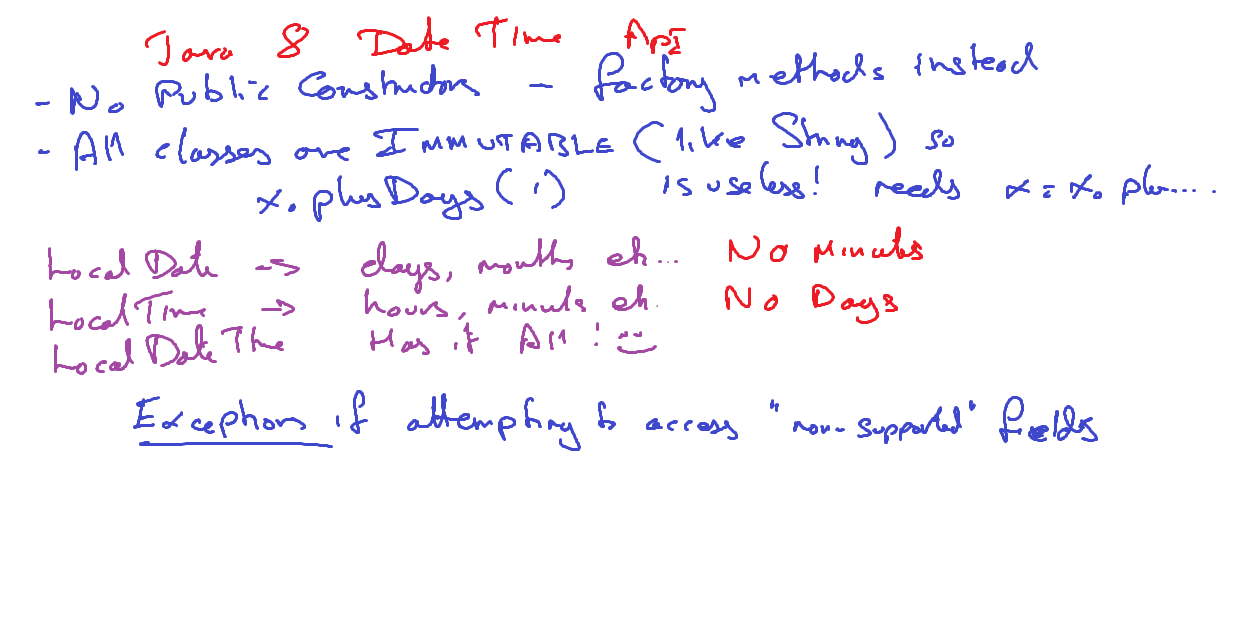 Java 8 Date Time API
- No Public Constructors - factory methods instead
- All classes are IMMUTABLE (like String) so
x.plusDays(1) is useless! needs x = x.plu....
Local Date -> days, months etc... No Minutes
Local Time -> hours, minutes etc. No Days
Local Date Time Has it All! :)
Exceptions if attempting to access "non-supported" fields